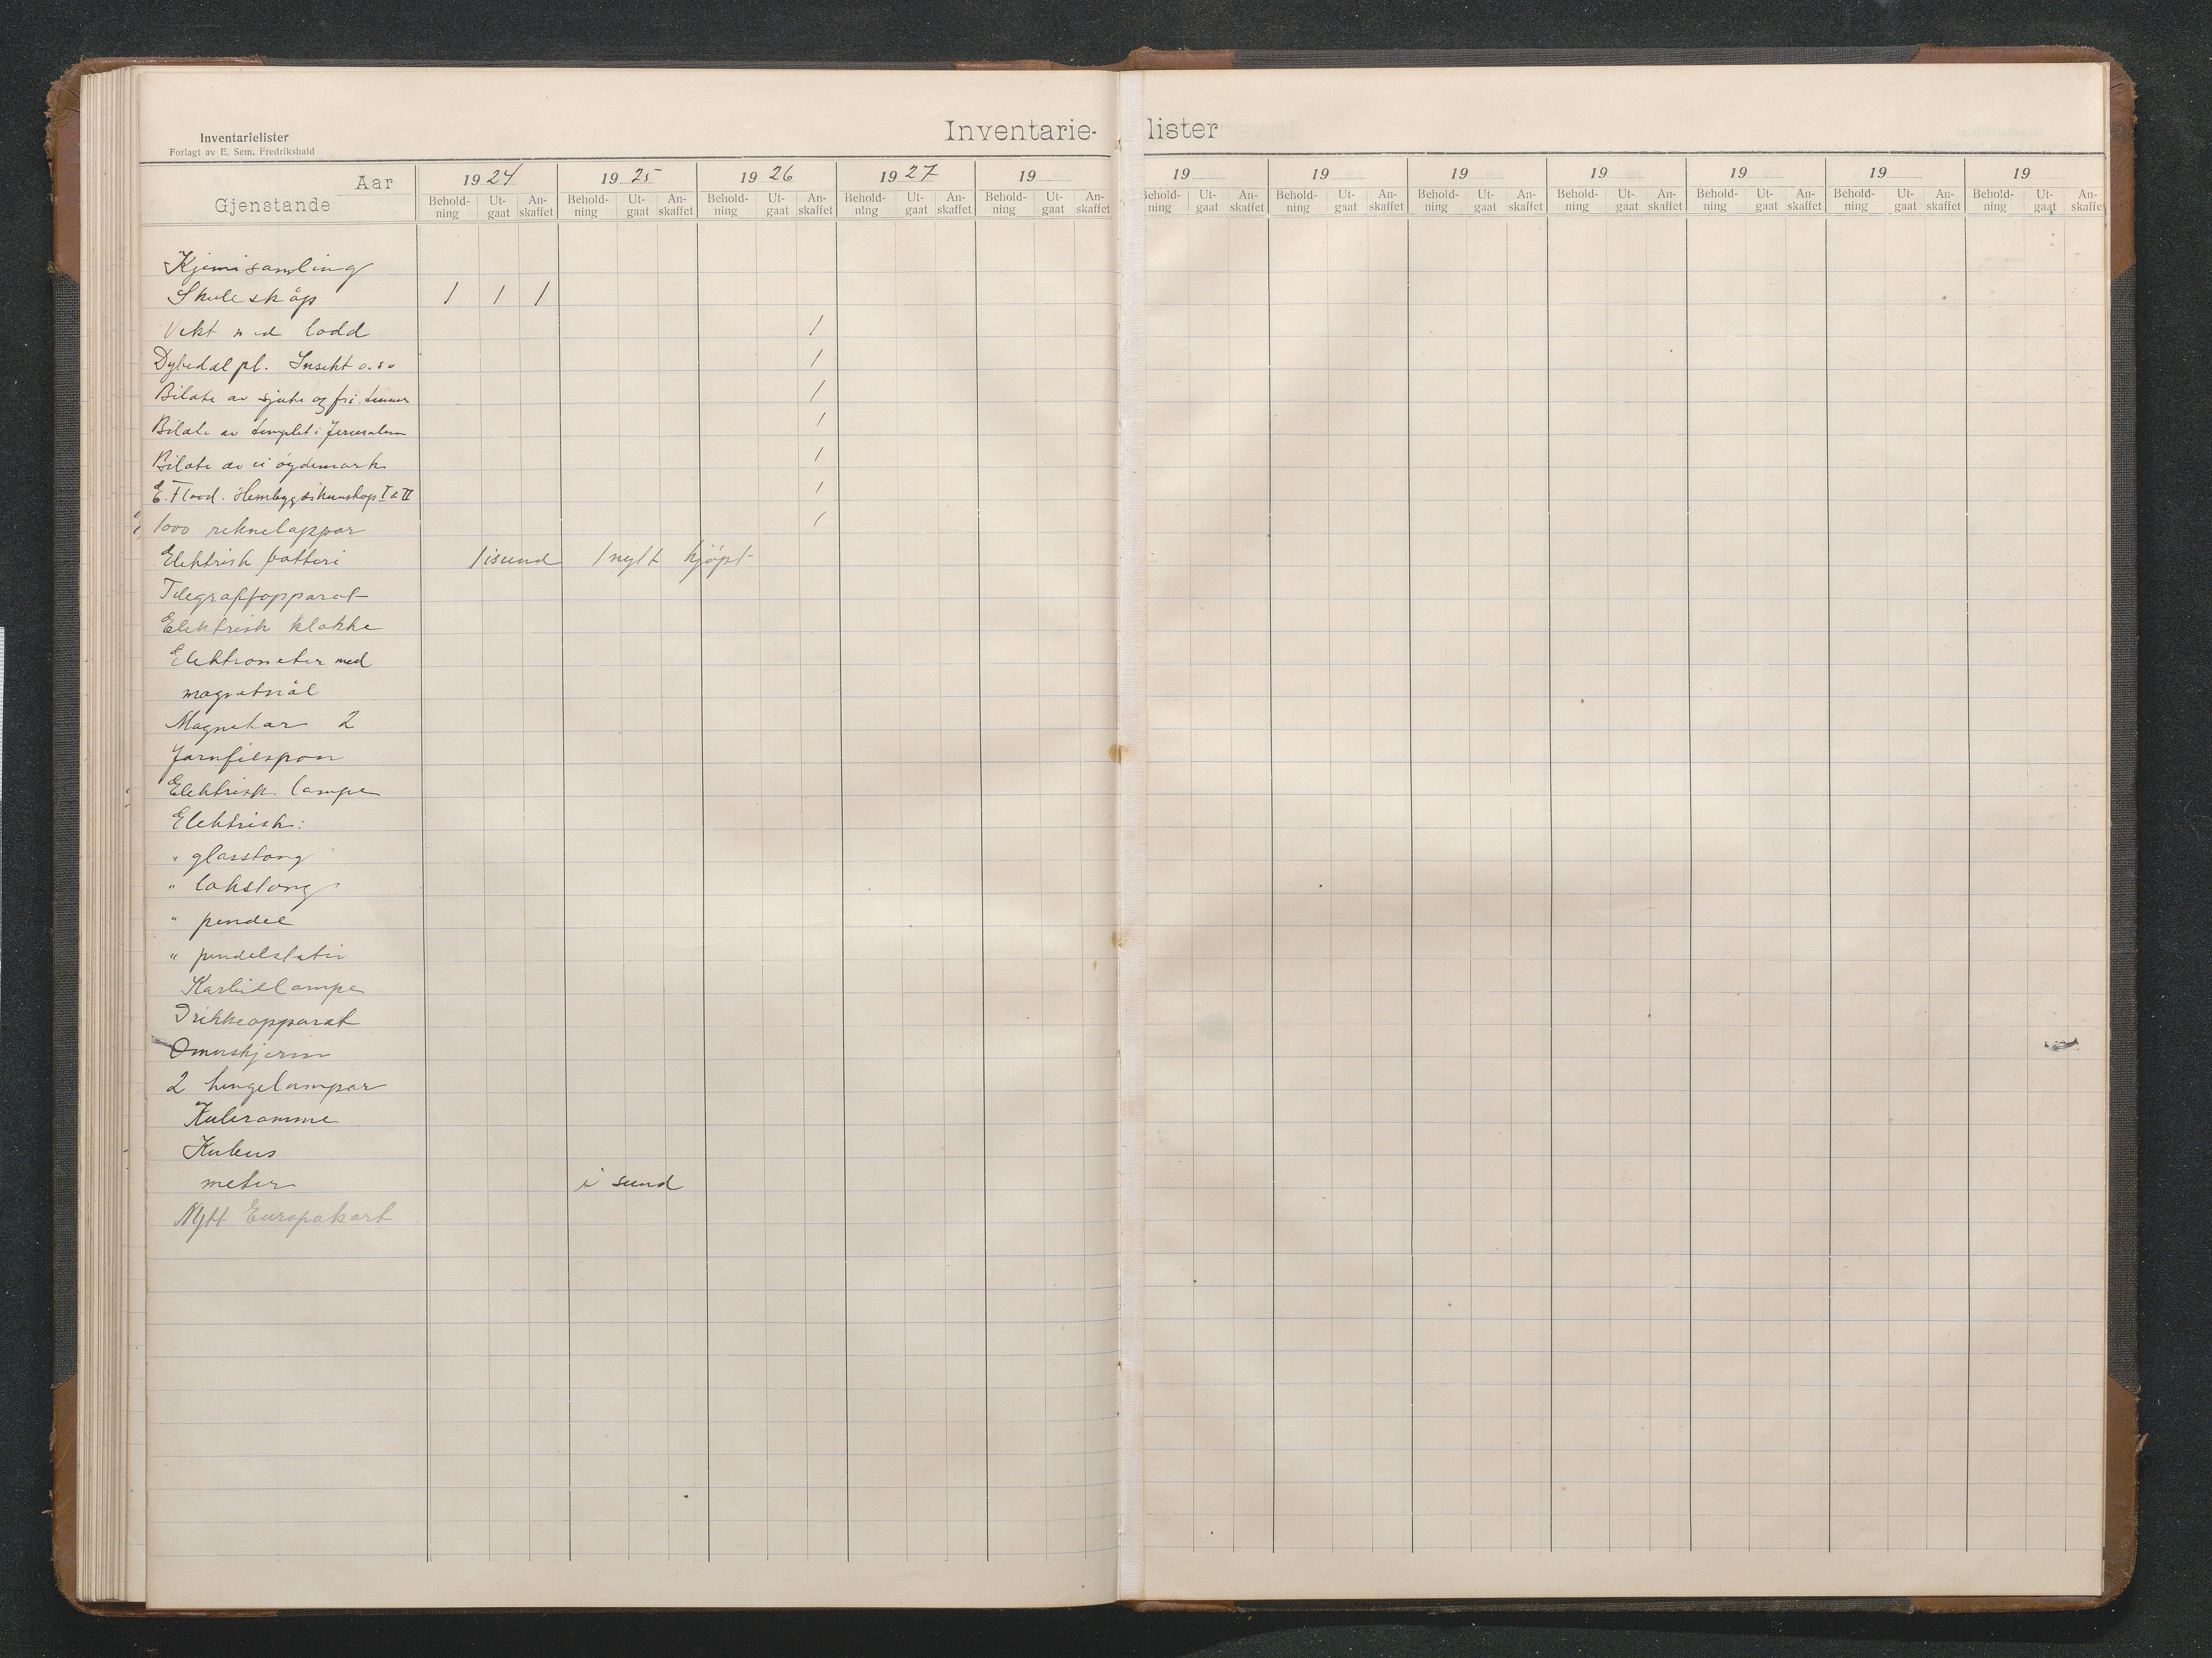 Inventarielister
Forlagt av E. Sem. Fredrikshald
Inventarie- lister
Aar 1924 1925 1926 1927 19 19 19 19 19 19 19 19
Gjenstande Behold-ning Ut-gaat An-skaffet Behold-ning Ut-gaat An-skaffet Behold-ning Ut-gaat An-skaffet Behold-ning Ut-gaat An-skaffet Behold-ning Ut-gaat An-skaffet Behold-ning Ut-gaat An-skaffet Behold-ning Ut-gaat An-skaffet Behold-ning Ut-gaat An-skaffet Behold-ning Ut-gaat An-skaffet Behold-ning Ut-gaat An-skaffet Behold-ning Ut-gaat An-skaffet Behold-ning Ut-gaat An-skaffet
Kjemisamling
Skuleskåp 1 1 1
Vekt med lodd 1
Dybedal pl. Insekt o.so 1
Bilæte av sjuke og fri. 1
Bilæte av templet i Jerusalem 1
Bilæte av ei øydemark 1
E. Flood. Heimbygdskunskap I & II 1
1000 reknelappar 1
Elektrisk batteri 1 isund 1 nytt kjøpt
Telegrafapparat
Elektrisk klokke
Elektrometer med
magnetnål
Magnetar 2
Jarnfilspon
Elektrisk lampe
Elektrisk:
" glasstong
" lakstong
" pendel
" pendelstativ
Karbidlampe
Drikkeapparat
Omnskjerm
2 hengelampar
Kuleramme
Kubus
meter i sund
Nytt Europakart